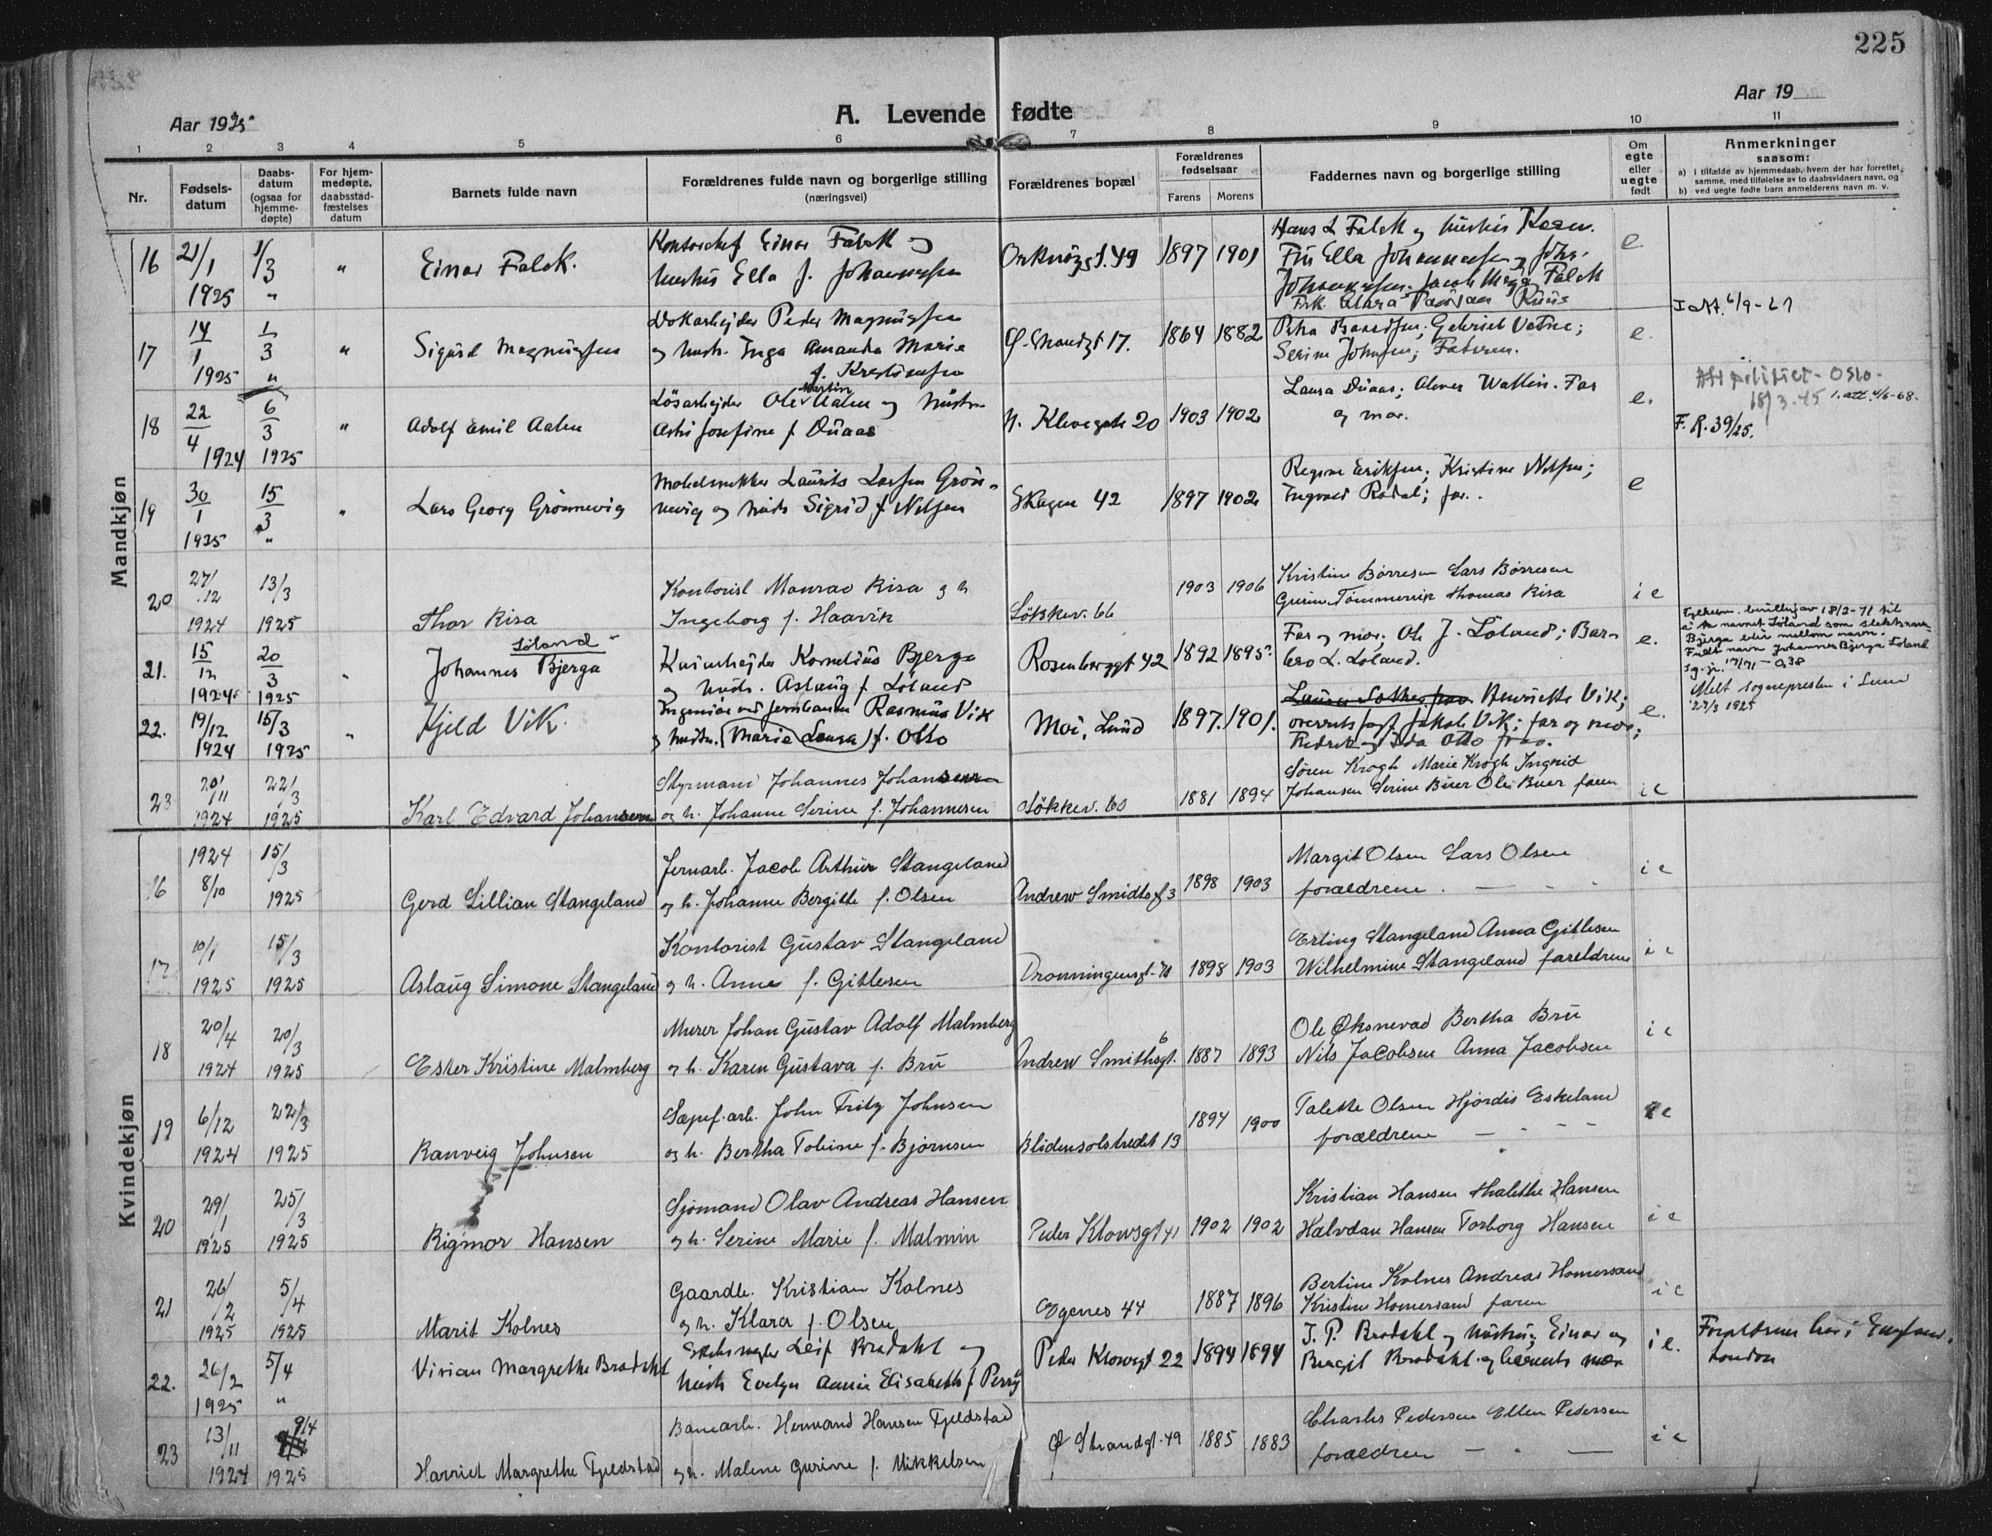 225
Aar 1925
A. Levende fødte
Aar 19
1 2 3 4 5 6 7 8 9 10 11
Nr.
Fødsels-
datum
Daabs-
datum
(ogsaa for
hjemme-
døpte)
For hjem-
medøpte,
daabsstad-
fæstelses
datum
Barnets fulde navn
Forældrenes fulde navn og borgerlige stilling
(næringsvei)
Forældrenes bopæl
Forældrenes
fødselsaar
Farens Morens
Faddernes navn og borgerlige stilling
Om
egte
eller
uegte
født
Anmerkninger
saasom:
a) i tilfælde av hjemmedaab, hvem der har forrettet
samme, med tilføielse av to daabsvidners navn, og
b) ved uegte fødte barn anmelderens navn m. v.
Mandkjøn
16 21/1 1925 1/3 " " Einar Falck.
Kontorchef Einar Falck og
hustru Ella f. Johannessen
1897 1901
Hans L Falck og hustru
Frk Ella Johannessen, Johs.
Johannessen. Jacob Falck
Frk. Clara
e.
17 14/1 1925 1/3 " " Sigurd Magnussen
Peder Magnussen
og hustr. Inga Amanda Marie
f. Kristensen
Ø. Strandgt 17. 1864 1882
Gabriel Vatne;
Serine Johnsen; Faderen.
e.
I att. 6/9-27
18 22/4 1924 6/3 1925 " Adolf Emil Aalen
Løsarbejder Ole Martin Aalen og hustru
Josefine f. Duaas
N. Klevegate 20 1903 1902
Laura Duaas; Wallin. Far
og mor.
e.
Att politiet - Oslo -
18/3-45 1. att. 4/6-68-
F. R. 39/25.
19 30/1 1925 15/3 " " Lars Georg Grønnevig
Møbelsnekker Laurits Larsen Grøn-
nevig og hustr Sigrid f Nilsen
Skagen 42 1897 1902
Regine Eriksen; Kristine Nilsen;
Ingvald Rodal; far.
e
20 27/12 1924 13/3 1925 Thor Risa
Kontorist Monrad Risa og h
Ingeborg f. Haavik
Løkkev. 66 1903 1906
Kristine Børresen Lars Børresen
Gurine Tømmervik Thomas Risa
i e
21. 15/12 1924 20/3 1925 " Johannes Bjerga Løland
Kornelius Bjerga
og hustr. Aslaug f. Løland
Rosenberggt 42 1892 1895
Far og mor. Ole J. Løland; Bar-
bro L. Løland.
e.
Fylkesm. bevilling av 18/2-71 til
å ta navnet Løland som slektsnavn
Bjerga blir mellom navn.
Fullt navn Johannes Bjerga Løland
22. 19/12 1924 15/3 1925 " Kjeld Vik.
Ingeniør ved jernbanen Rasmus Vik
og hustr. (Marie Laura) f. Otto
Moi, Lund 1897. 1901.
Henriette Vik;
Jakob Vik; far og mor;
Fredrik og Ida Otto
e.
Melt sognepresten i Lund
27/3 1925
23 20/11 1924 22/3 1925 Karl Edvard Johansen
Styrmand Johannes Johansen
og h. Johanne Serine f. Johannesen
Løkkev. 60 1881 1894
Søren Krogh Marie Krogh Ingrid
Johansen Serine Buer Ole Buer faren
i e
Kvindekjøn
16 1924 8/10 15/3 1925 Gerd Lillian Stangeland
Jernarb. Jacob Arthur Stangeland
og h. Johanne Bergitte f. Olsen
Andrew Smidtsgt 3 1898 1903
Margit Olsen Lars Olsen
forældrene
i e
17 10/1 1925 15/3 1925 Aslaug Simone Stangeland
Kontorist Gustav Stangeland
og h. Anna f. Gitlesen
Dronningensgt. 1898 1903
Erling Stangeland Anna Gitlesen
Wilhelmine Stangeland foreldrene
i e
18 20/4 1924 20/3 1925 Ester Kristine Malmberg
Murer Johan Gustav Adolf Malmberg
og h. Karen Gustava f. Bru
Andrew Smithsgt. 6 1887 1893
Ole Øksnevad Bertha Bru
Nils Jacobsen Anna Jacobsen
i e
19 6/12 1924 22/3 1925 Ranveig Johnsen
Sæpef. arb. John Fritz Johnsen
og h. Bertha Tobine f. Bjørnsen
Blidensolstredet 13 1894 1900
Talette Olsen Hjørdis Eskeland
forældrene
i e
20 29/1 1925 25/3 1925 Rigmor Hansen
Sjømand Olav Andreas Hansen
og h. Serine Marie f. Malmin
Peder Klowsgt 41 1902 1902
Kristian Hansen Thalethe Hansen
Halvdan Hansen Torborg Hansen
i e
21 26/2 1925 5/4 1925 Marit Kolnes
Gaardbr. Kristian Kolnes
og h. Klara f. Olsen
Egenes 44 1887 1896
Bertine Kolnes Andreas Homersand
Kristine Homersand faren
i e
22. 26/2 1925 5/4 " Vivian Margrethe Brodahl
Skibsmegler Leif Brodahl og
hustr Evelyn Annie Elisabeth f Perry
Peder Klowsgt 22 1894 1894
J. P. Brodahl og hustru; Einar og
Bergit Brodahl og barnets mor
i e.
Forældrene bor i England.
London
23 13/11 1924 9/4 1925 Harriet Margrethe Fjeldstad
Banearb. Hermand Hansen Fjeldstad
og h. Malene Gurine f. Mikkelsen
Ø Strandgt. 49 1885 1883
Charles Pedersen Ellen Pedersen
forældrene
i e